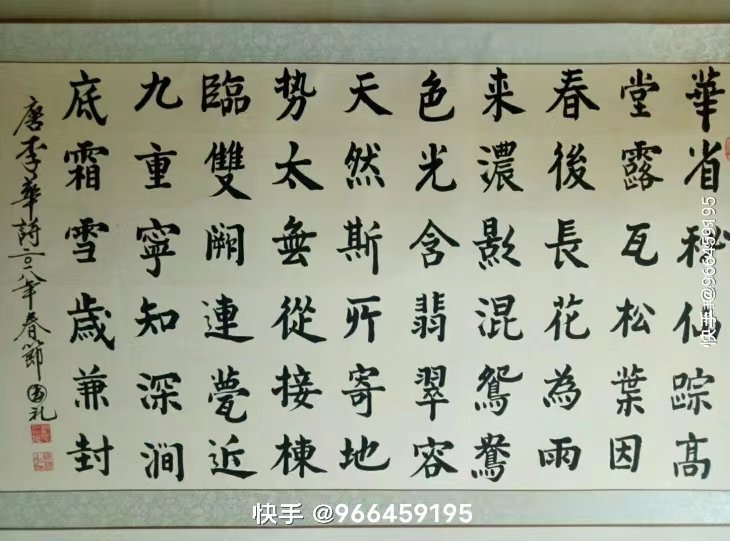 華省秘仙踪高
堂露瓦松葉因
春後長花為雨
来濃影混鴛鴦
色光含翡翠容
天然斯所寄地
势太無從接棟
臨雙闕連甍近
九重寧知深澗
底霜雪歲兼封
唐李華詩二〇一八年春節
快手@966459195
快手 @966459195